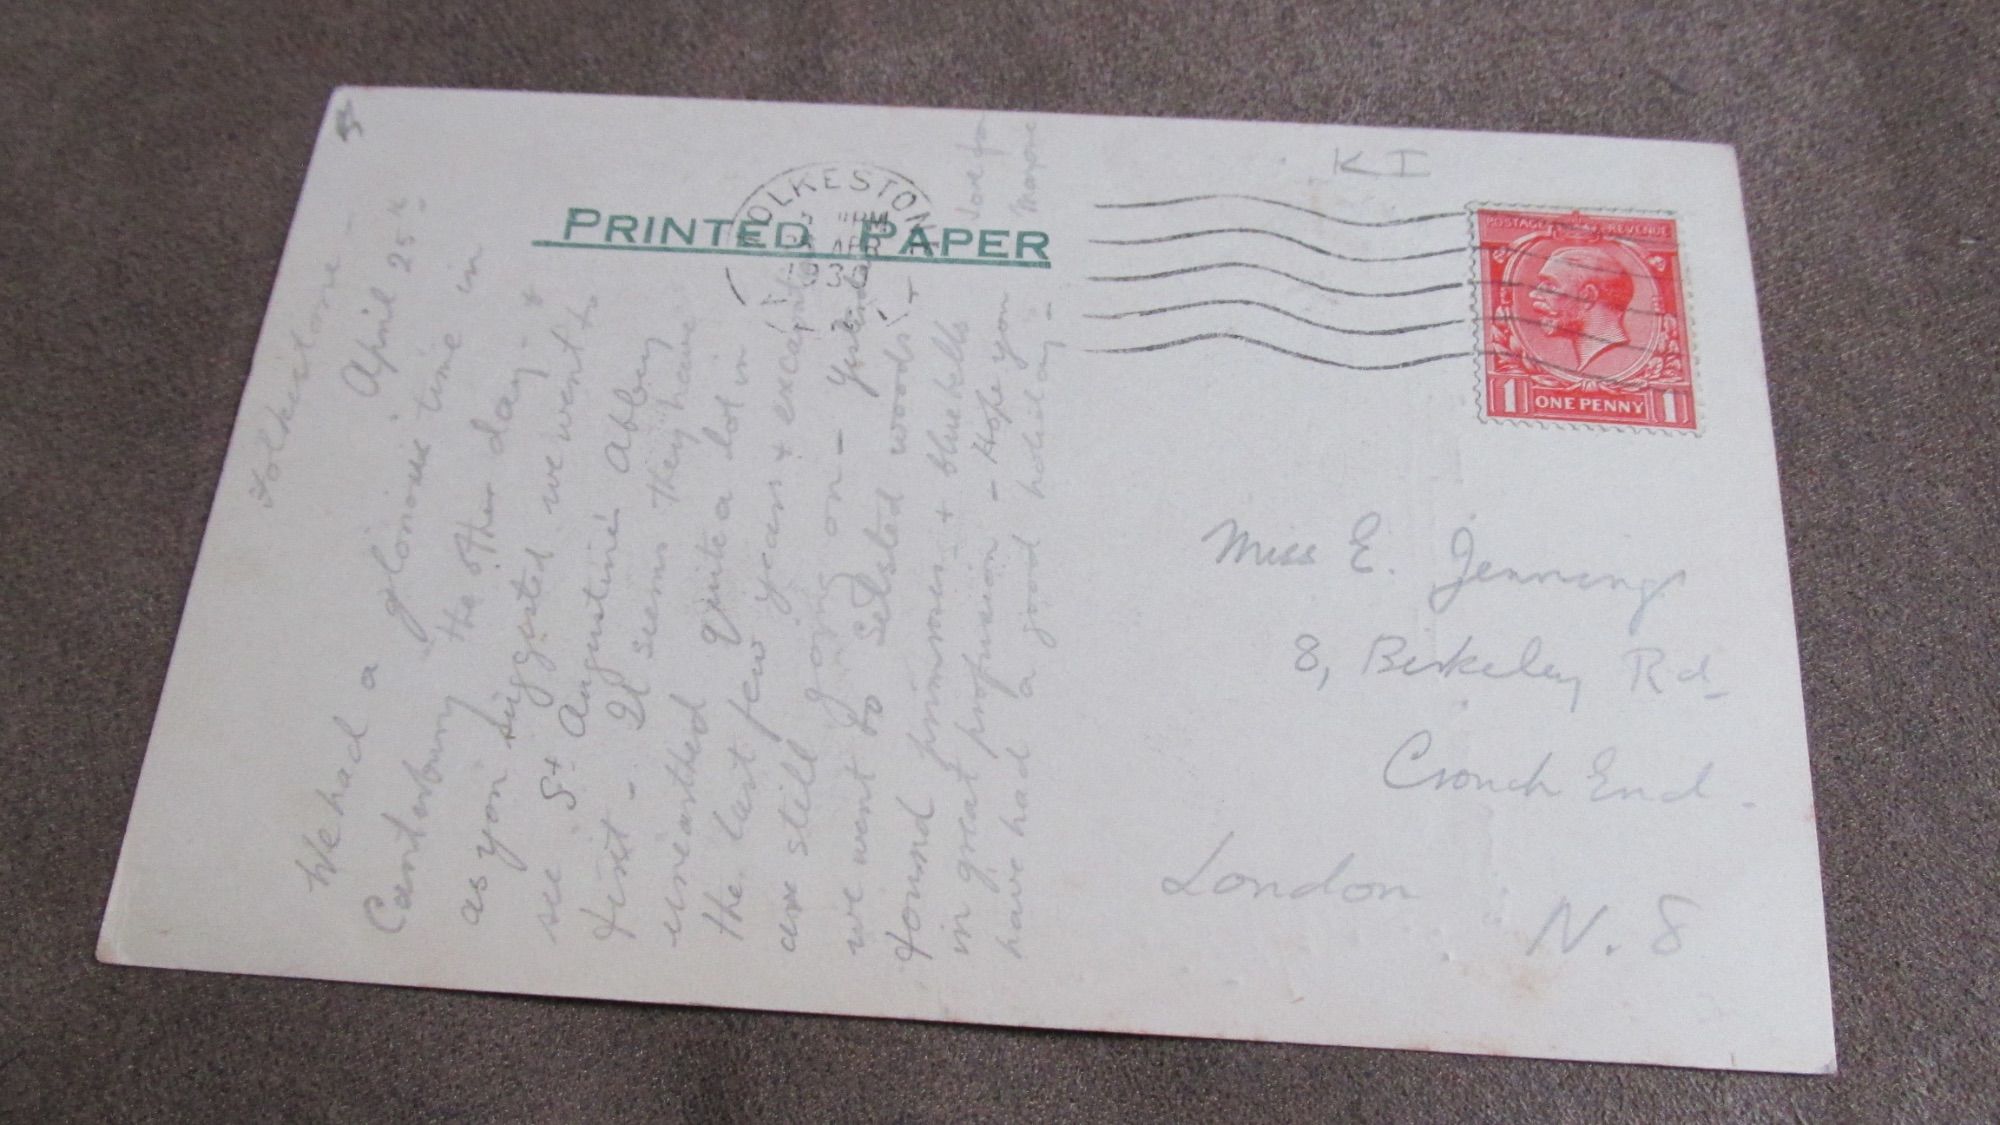 PRINTED PAPER
FOLKESTONE
PM
APR
193
K I
POSTAGE REVENUE
1 ONE PENNY 1
Folkestone -
April 25th
We had a glorious time in
Canterbury the other day - &
as you suggested we went to
see St. Augustine's Abbey
first - It seems they have
unearthed quite a lot in
the last few years & excavations
are still going on - Yesterday
we went to Selsted woods &
found primroses & bluebells
in great profusion - Hope you
have had a good holiday -
Love from
Marjorie
Miss E. Jennings
8, Berkeley Rd.
Crouch End.
London
N. 8